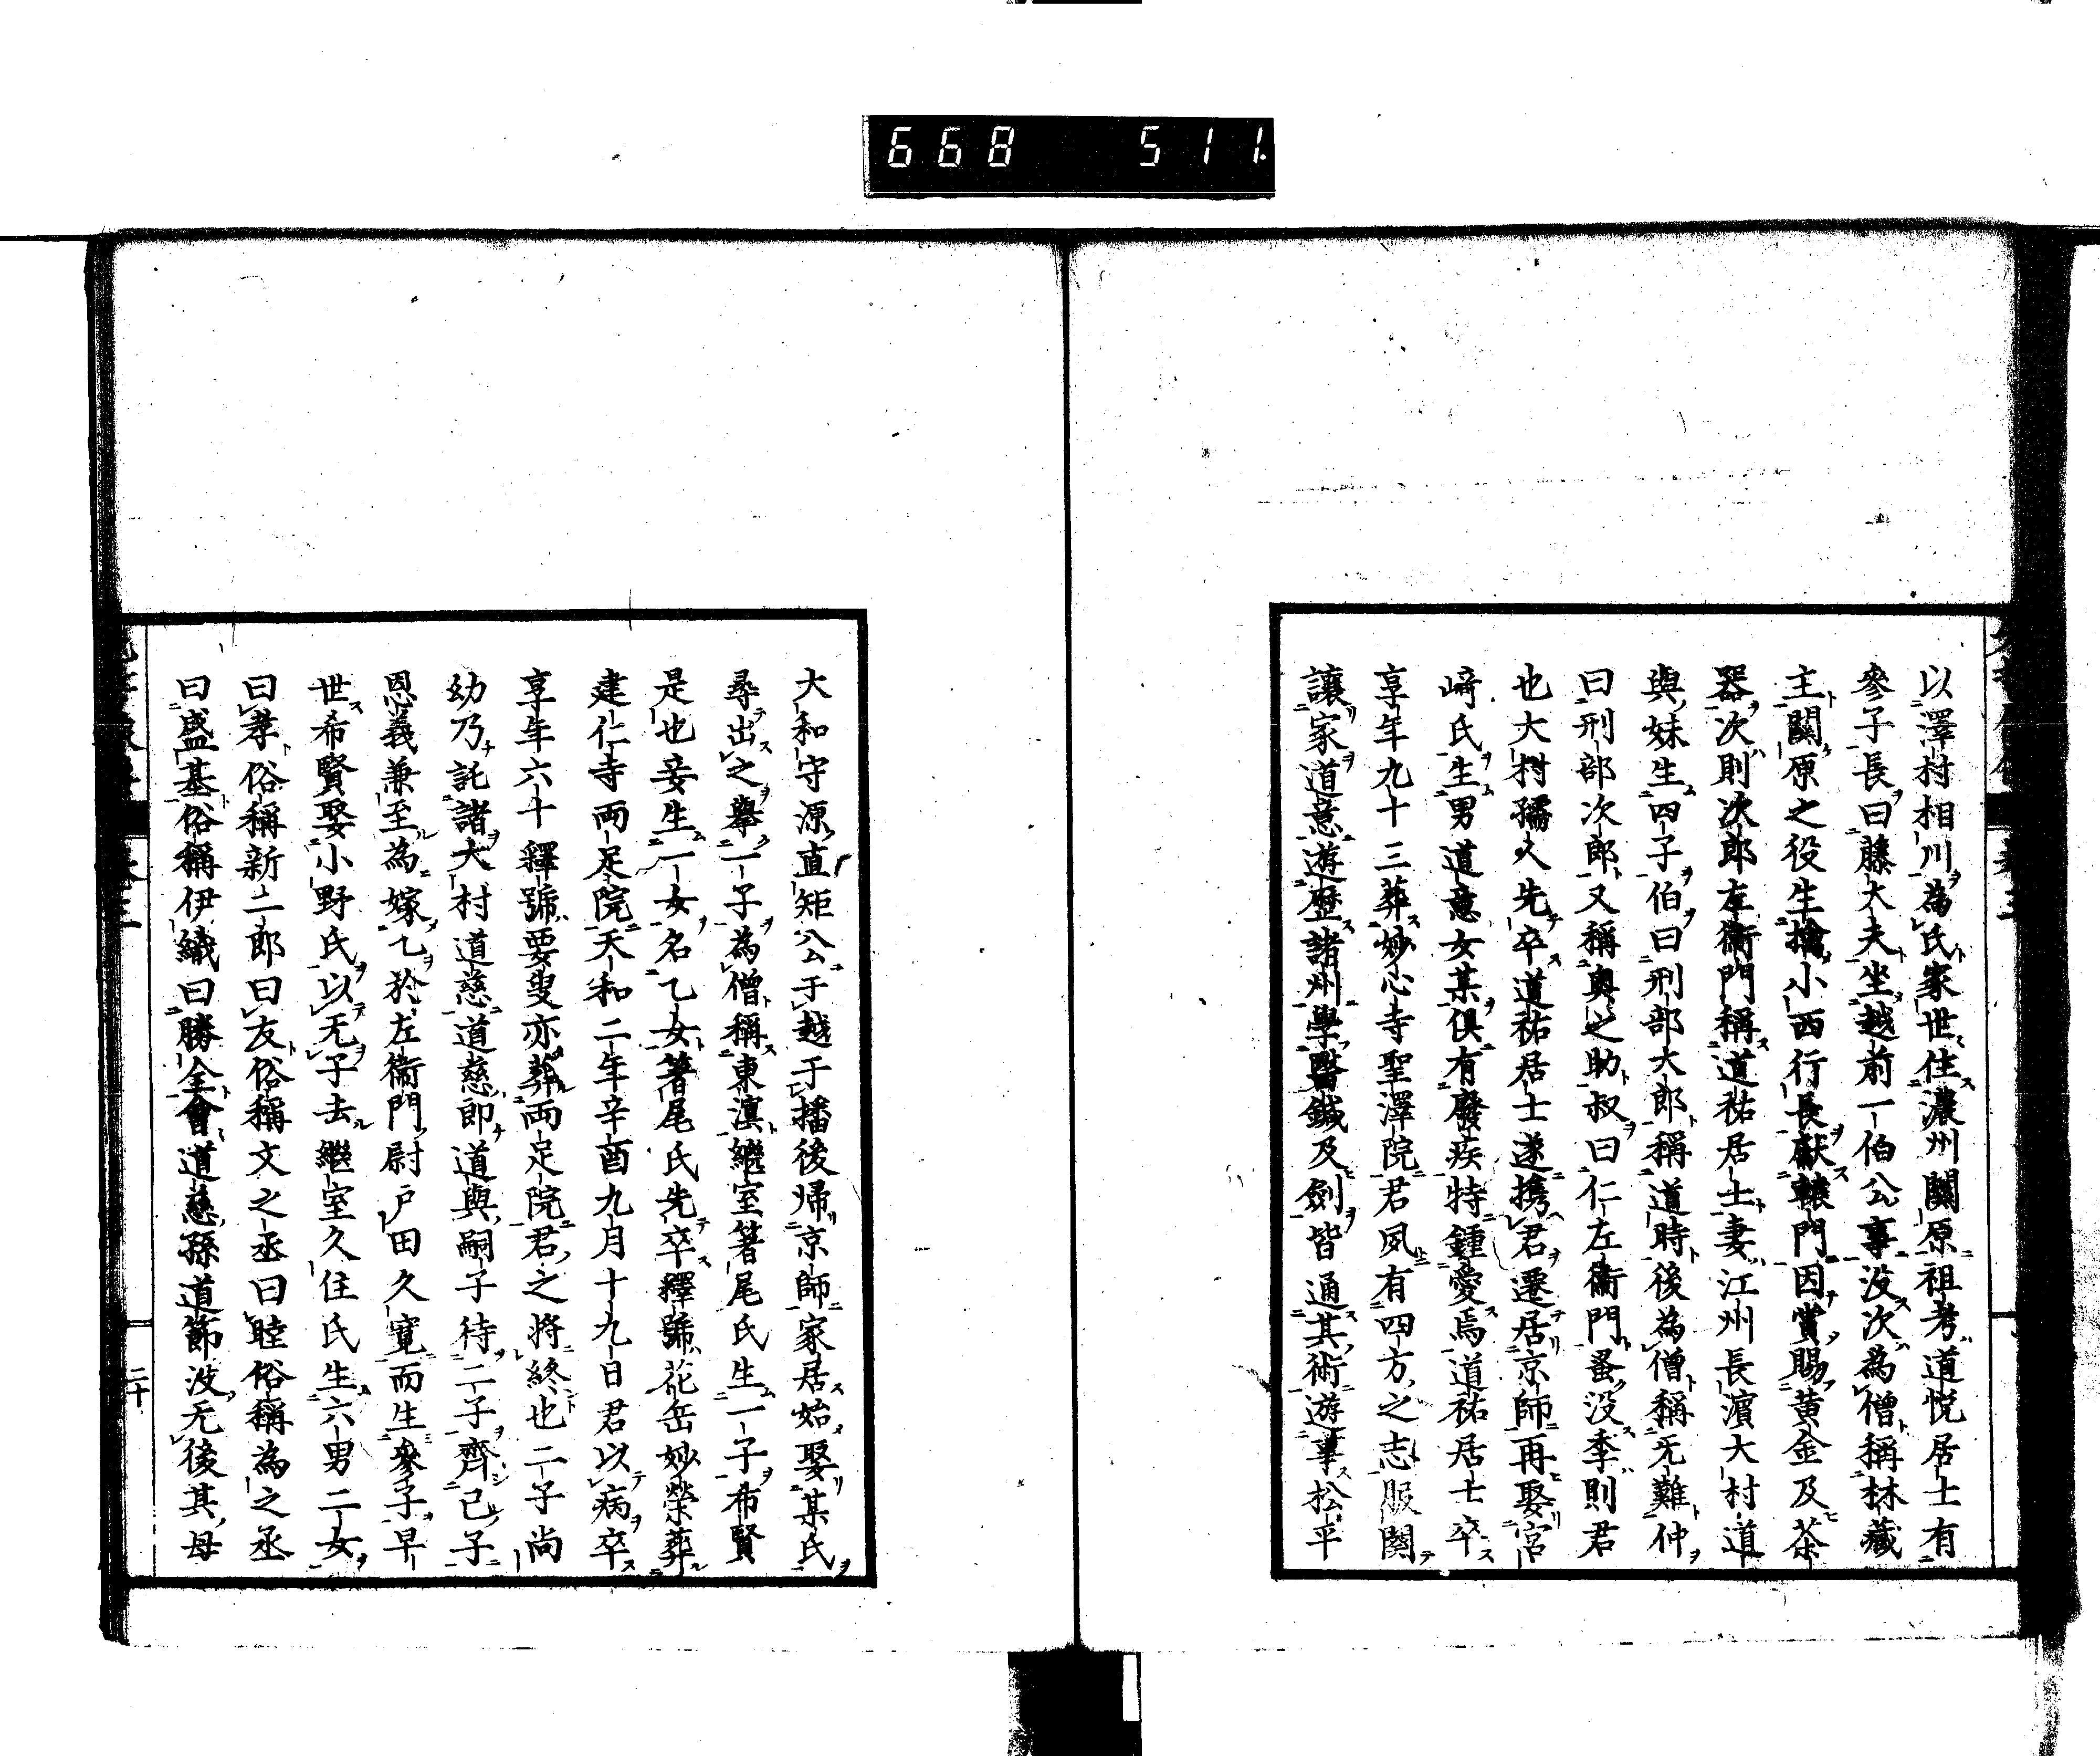 668 511.
以澤村相川為氏家世住濃州關原祖考道悦居士有
參子長曰藤大夫坐越前一伯公事没次為僧稱林藏
主關原之役生擒小西行長獻轅門因賞賜黄金及茶
器次則次郎左衞門稱道祐居士妻江州長濵大村道
與妹生四子伯曰刑部大郎稱道時後為僧稱无難仲
曰刑部次郎又稱奥之助叔曰仁左衞門蚤没季則君
也大村孺人先卒道祐居士遂携君遷居京師再娶宮
﨑氏生男道意女某俱有廢疾特鍾愛焉道祐居士卒
享年九十三葬妙心寺聖澤院君夙有四方之志服闋
讓家道意遊歴諸州學醫鍼及劍皆通其術遊事松平
大和守源直矩公于越于播後帰京師家居始娶某氏
尋出之擧一子為僧稱東溟繼室箸尾氏生一子希賢
是也妾生一女名乙女箸尾氏先卒釋號花岳妙榮葬
建仁寺兩足院天和二年辛酉九月十九日君以病卒
享年六十釋號要叟亦葬兩足院君之將終也二子尚
幼乃託諸大村道慈道慈即道與嗣子待二子齊己子
恩義兼至為嫁乙於左衞門尉戸田久寛而生參子早
世希賢娶小野氏以无子去繼室久住氏生六男二女
曰孝俗稱新二郎曰友俗稱文之丞曰睦俗稱為之丞
曰盛基俗稱伊織曰勝全會道慈孫道節没无後其母
二十